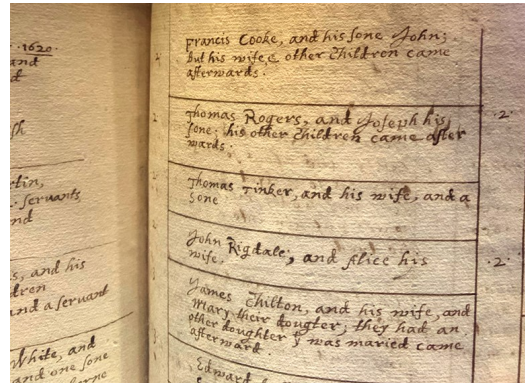 ·1620·
and
d
sh
rlin,
servants
nd
s, and his
dren
and a servant
White, and
and one sone
borne
francis Cooke, and his sone John;
But his wife & other children came
afterwards.
2
Thomas Rogers, and Joseph his
sone; his other children came after
wards.
·2·
Thomas Tinker, and his wife, and a
sone
John Rigdale; and Alice his
wife.
·2·
James Chilton, and his wife, and
Mary their dougter; they had an
other doughter y was maried came
afterward.
Edward